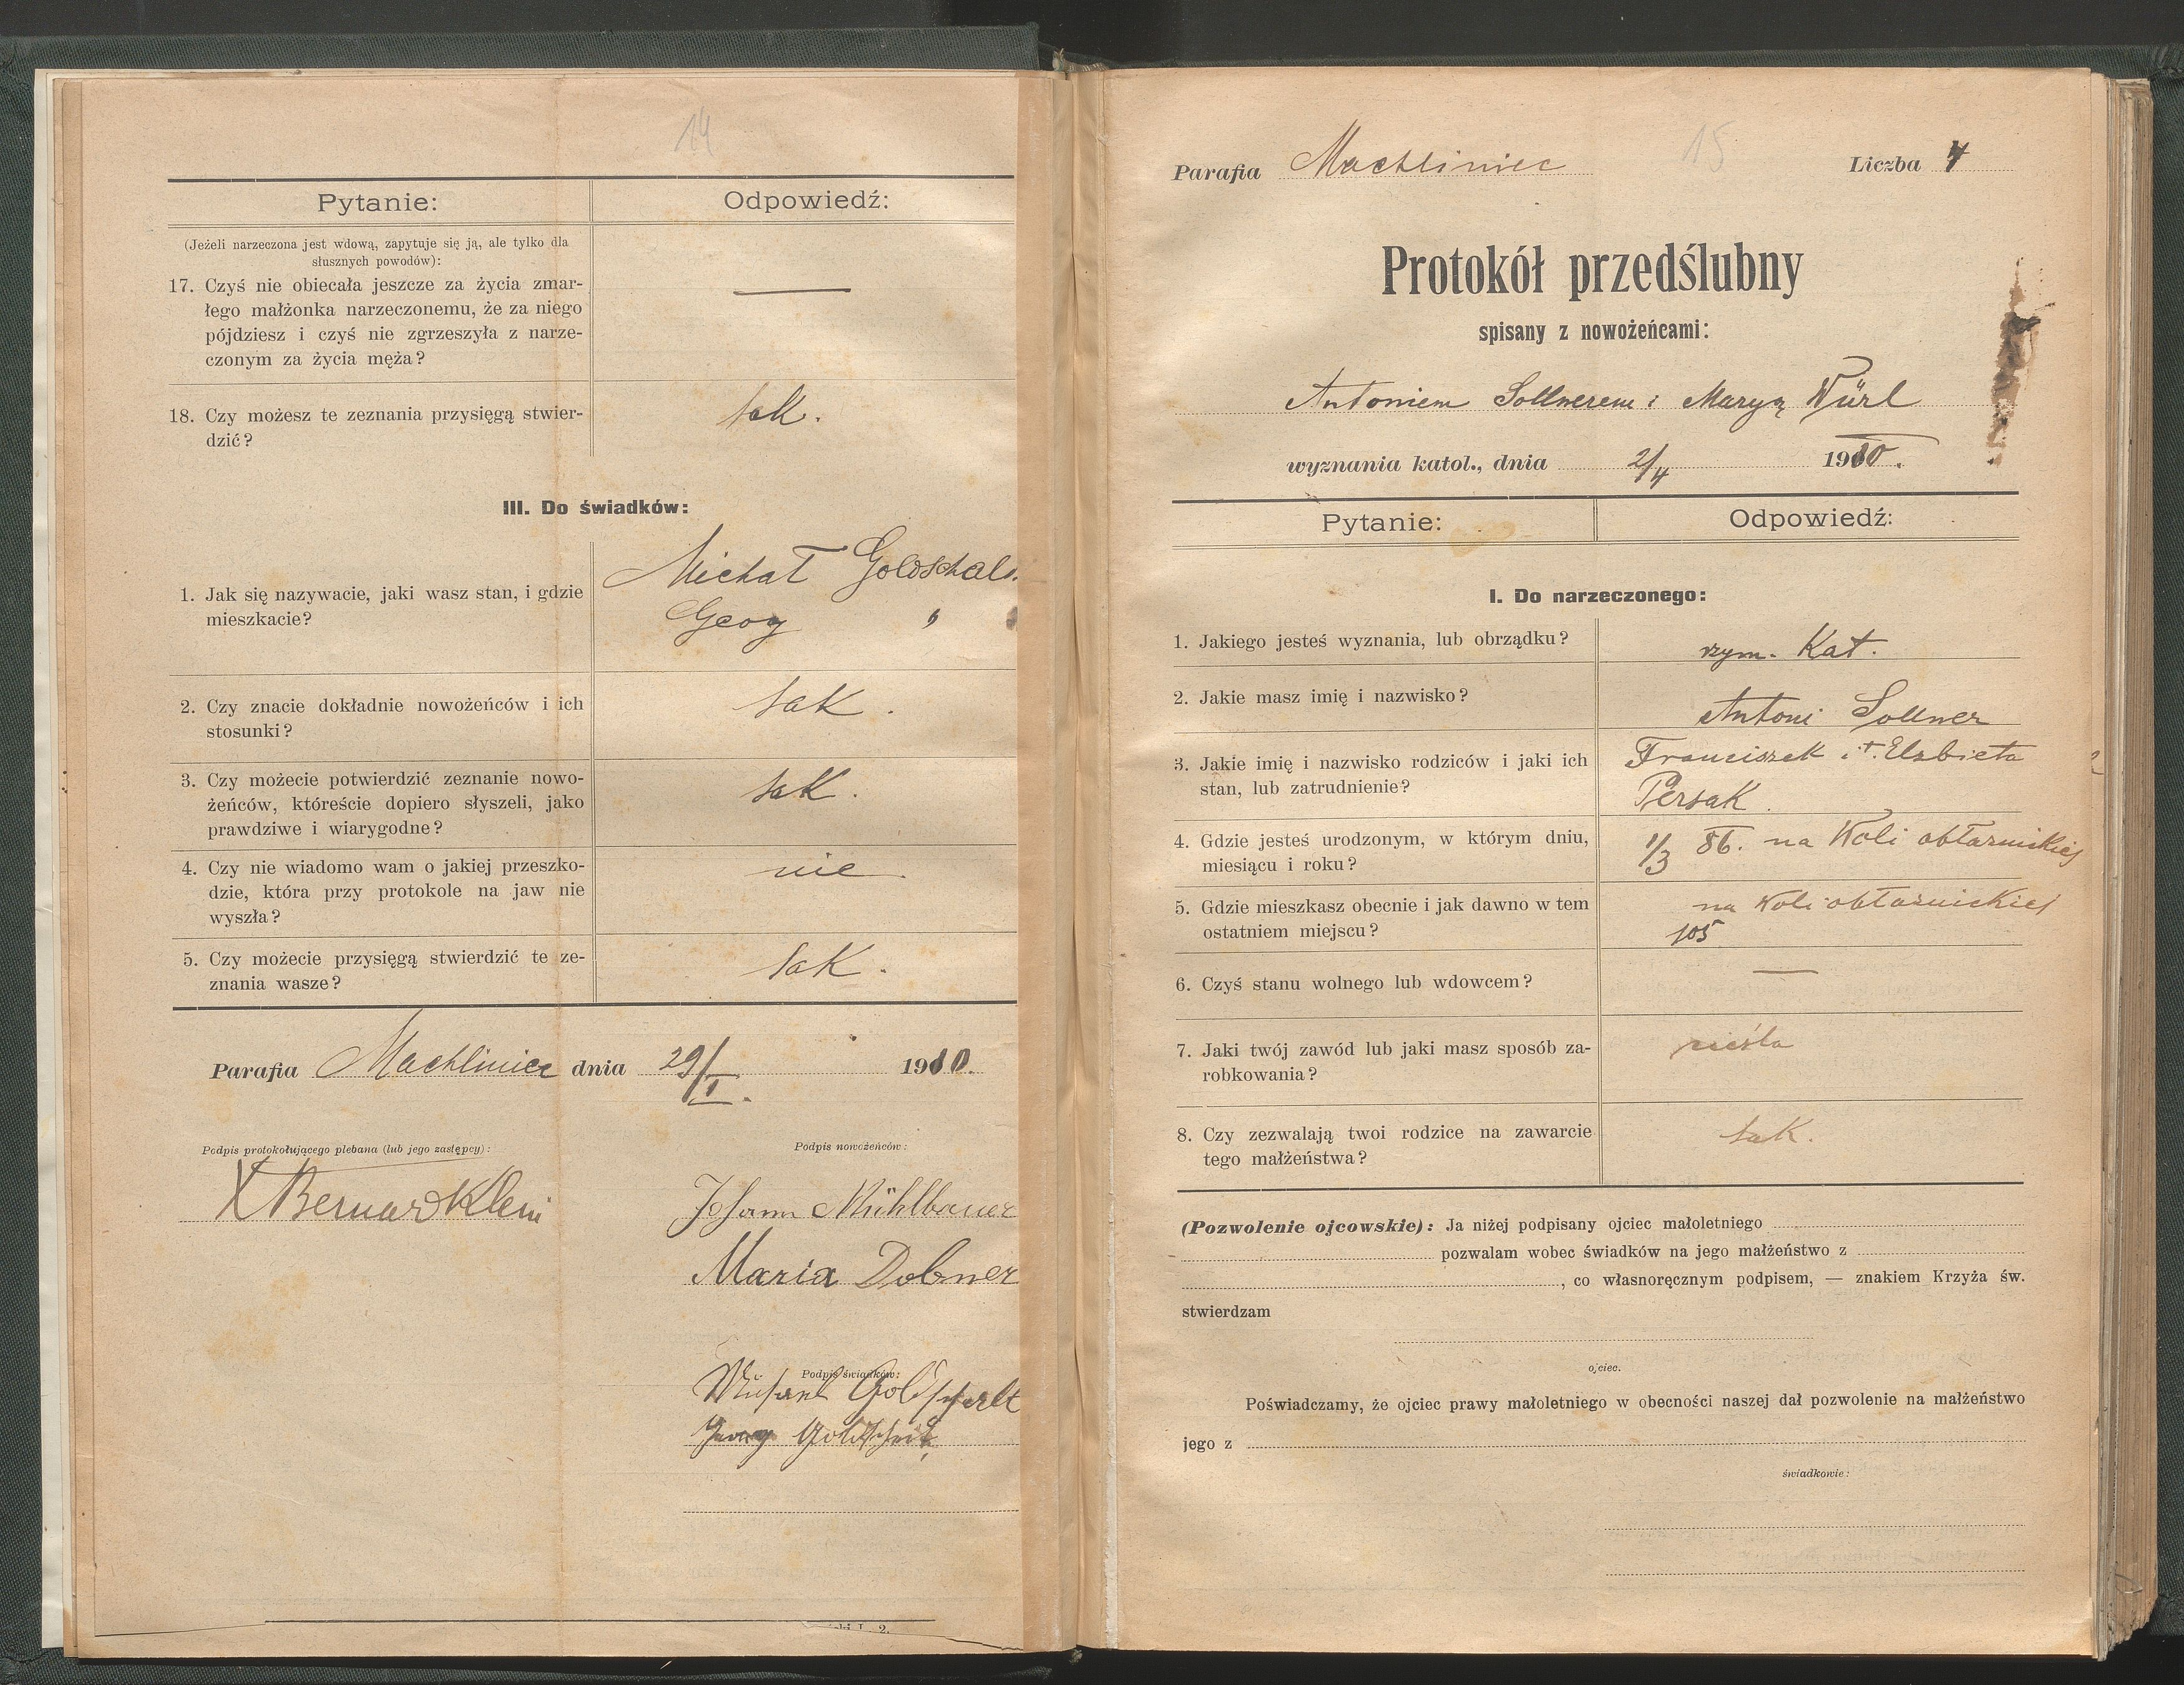 14
Pytanie:
Odpowiedź:
(Jeżeli narzeczona jest wdową, zapytuje się ją, ale tylko dla
słusznych powodów):
17. Czyś nie obiecała jeszcze za życia zmar-
łego małżonka narzeczonemu, że za niego
pójdziesz i czyś nie zgrzeszyła z narze-
czonym za życia męża?
—
18. Czy możesz te zeznania przysięgą stwier-
dzić?
tak.
III. Do świadków:
1. Jak się nazywacie, jaki wasz stan, i gdzie
mieszkacie?
Michał
Georg "
2. Czy znacie dokładnie nowożeńców i ich
stosunki?
tak.
3. Czy możecie potwierdzić zeznanie nowo-
żeńców, któreście dopiero słyszeli, jako
prawdziwe i wiarygodne?
tak.
4. Czy nie wiadomo wam o jakiej przeszko-
dzie, która przy protokole na jaw nie
wyszła?
nie
5. Czy możecie przysięgą stwierdzić te ze-
znania wasze?
tak.
Parafia Machliniec dnia 29/I. 1910.
Podpis protokołującego plebana (lub jego zastępcy):
X Bernard Klein
Podpis nowożeńców:
Johann Mühlbauer
Maria Dobner
Podpis świadków:
Michael Goldschalt
Georg
15
Parafia Machliniec Liczba 4
Protokół przedślubny
spisany z nowożeńcami:
Antoniem Sollnerem i Maryą Würl
wyznania katol., dnia 2/4 1910.
Pytanie:
Odpowiedź:
I. Do narzeczonego:
1. Jakiego jesteś wyznania, lub obrządku?
rzym. Kat.
2. Jakie masz imię i nazwisko?
Antoni Sollner
3. Jakie imię i nazwisko rodziców i jaki ich
stan, lub zatrudnienie?
Franciszek i †. Elzbieta
Persak.
4. Gdzie jesteś urodzonym, w którym dniu,
miesiącu i roku?
1/3 86. na Woli obłaznickiej
5. Gdzie mieszkasz obecnie i jak dawno w tem
ostatniem miejscu?
na Woli obłaznickiej
105
6. Czyś stanu wolnego lub wdowcem?
—
7. Jaki twój zawód lub jaki masz sposób za-
robkowania?
cieśla
8. Czy zezwalają twoi rodzice na zawarcie
tego małżeństwa?
tak.
(Pozwolenie ojcowskie): Ja niżej podpisany ojciec małoletniego
pozwalam wobec świadków na jego małżeństwo z
, co własnoręcznym podpisem, — znakiem Krzyża św.
stwierdzam
ojciec.
Poświadczamy, że ojciec prawy małoletniego w obecności naszej dał pozwolenie na małżeństwo
jego z
świadkowie: